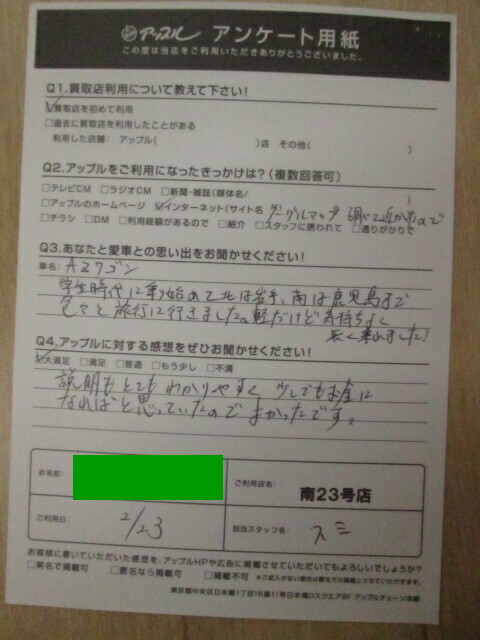 アップル アンケート用紙
この度は当店をご利用いただきありがとうございました。
Q1.買取店利用について教えて下さい!
☑買取店を初めて利用
□過去に買取店を利用したことがある
利用した店舗: アップル( )店 その他( )
Q2.アップルをご利用になったきっかけは?(複数回答可)
□テレビCM □ラジオCM □新聞・雑誌(媒体名/ )
□アップルのホームページ ☑インターネット(サイト名 グーグルマップ 調べて近かたので
□チラシ □DM □利用経験があるので □紹介 □スタッフに誘われて □通りがかりで
Q3.あなたと愛車との思い出をお聞かせください!
車名: AZワゴン
学生時代に乗り始めて北は岩手、南は鹿児島まで
色々と旅行に行きました。軽だけど気持ちよく
長く乗れました!
Q4.アップルに対する感想をぜひお聞かせください!
☑大満足 □満足 □普通 □もう少し □不満
説明もとてもわかりやすく少しでもお金に
なればと思っていたのでよかったです。
お名前:
ご利用店名: 南23号店
ご利用日: 2/23
担当スタッフ名: スミ
お客様に書いていただいた感想を、アップルHPや広告に掲載させていただいてもよろしいでしょうか?
□実名で掲載可 □匿名なら掲載可 □掲載不可 ※ご記入がない場合は匿名での掲載とさせていただきます。
東京都中央区日本橋1丁目16番11号日本橋Dスクエア8F アップルチェーン本部